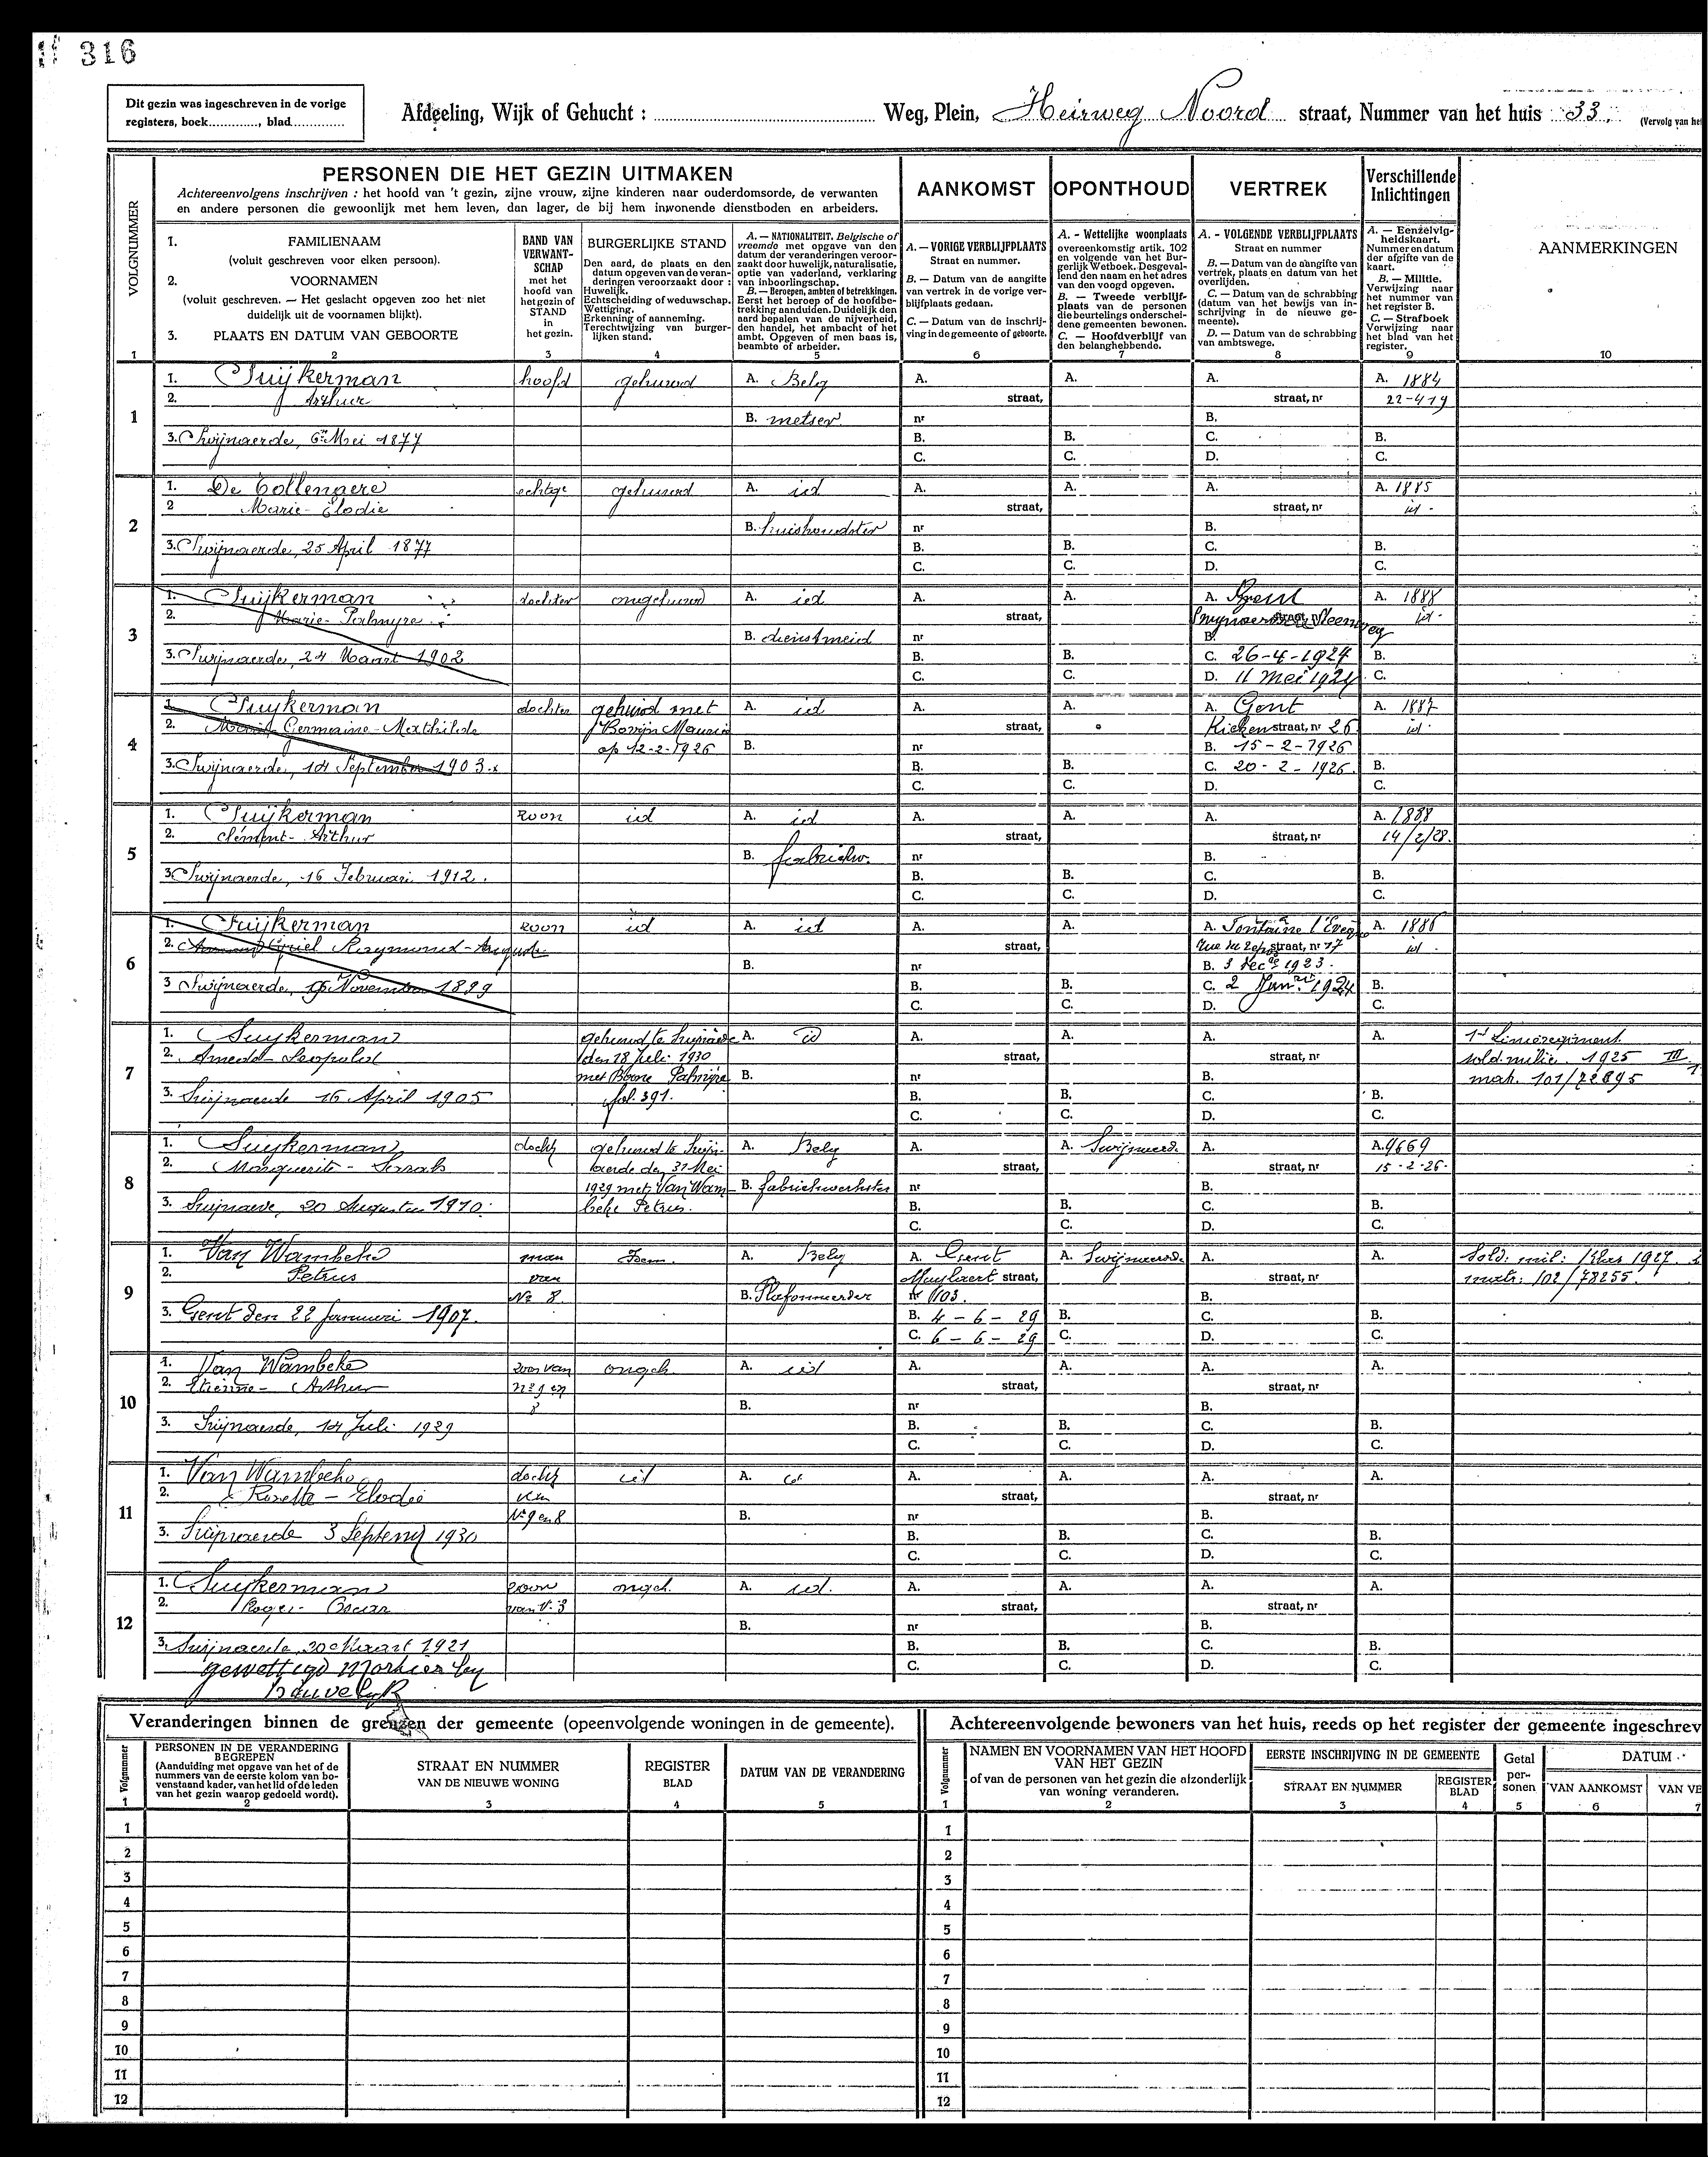 316
Dit gezin was ingeschreven in de vorige
registers, boek............, blad.............
Afdeeling, Wijk of Gehucht : ............ Weg, Plein, Heirweg Noord straat, Nummer van het huis 33.
(Vervolg van het
PERSONEN DIE HET GEZIN UITMAKEN
Achtereenvolgens inschrijven : het hoofd van 't gezin, zijne vrouw, zijne kinderen naar ouderdomsorde, de verwanten
en andere personen die gewoonlijk met hem leven, dan lager, de bij hem inwonende dienstboden en arbeiders.
AANKOMST
OPONTHOUD
VERTREK
Verschillende
Inlichtingen
VOLGNUMMER
1. FAMILIENAAM
(voluit geschreven voor elken persoon).
2. VOORNAMEN
(voluit geschreven. — Het geslacht opgeven zoo het niet
duidelijk uit de voornamen blijkt).
3. PLAATS EN DATUM VAN GEBOORTE
BAND VAN
VERWANT-
SCHAP
met het
hoofd van
het gezin of
STAND
in
het gezin.
BURGERLIJKE STAND
Den aard, de plaats en den
datum opgeven van de veran-
deringen veroorzaakt door :
Huwelijk.
Echtscheiding of weduwschap.
Wettiging.
Erkenning of aanneming.
Terechtwijzing van burger-
lijken stand.
A. — NATIONALITEIT. Belgische of
vreemde met opgave van den
datum der veranderingen veroor-
zaakt door huwelijk, naturalisatie,
optie van vaderland, verklaring
van inboorlingschap.
B. — Beroepen, ambten of betrekkingen.
Eerst het beroep of de hoofdbe-
trekking aanduiden. Duidelijk den
aard bepalen van de nijverheid,
den handel, het ambacht of het
ambt. Opgeven of men baas is,
beambte of arbeider.
A. — VORIGE VERBLIJFPLAATS
Straat en nummer.
B. — Datum van de aangifte
van vertrek in de vorige ver-
blijfplaats gedaan.
C. — Datum van de inschrij-
ving in de gemeente of geboorte.
A. - Wettelijke woonplaats
overeenkomstig artik. 102
en volgende van het Bur-
gerlijk Wetboek. Desgeval-
lend den naam en het adres
van den voogd opgeven.
B. — Tweede verblijf-
plaats van de personen
die beurtelings onderschei-
dene gemeenten bewonen.
C. — Hoofdverblijf van
den belanghebbende.
A. - VOLGENDE VERBLIJFPLAATS
Straat en nummer
B. — Datum van de aangifte van
vertrek, plaats en datum van het
overlijden.
C. — Datum van de schrabbing
(datum van het bewijs van in-
schrijving in de nieuwe ge-
meente).
D. — Datum van de schrabbing
van ambtswege.
A. — Eenzelvig-
heidskaart.
Nummer en datum
der afgifte van de
kaart.
B. — Militie.
Verwijzing naar
het nummer van
het register B.
C. — Strafboek
Verwijzing naar
het blad van het
register.
AANMERKINGEN
1 2 3 4 5 6 7 8 9 10
1
1. Suijkerman hoofd gehuwd A. Belg A. A. A. A. 1884
2. Arthur straat, straat, nr 22-4 19
B. metser nr B.
3. Swijnaerde, 6 Mei 1877 B. B. C. B.
C. C. D. C.
2
1. De Collenaere echtge gehuwd A. id A. A. A. A. 1885
2 Marie-Elodie straat, straat, nr id.
B. huishoudster nr B.
3. Swijnaerde, 25 April 1877 B. B. C. B.
C. C. D. C.
3
1. Suijkerman dochter ongehuwd A. id A. A. A. Gent A. 1888
2. Marie-Palmyre straat, straat, nr id.
B. dienstmeid nr B.
3. Swijnaerde, 24 Maart 1902 B. B. C. 26-4-1924 B.
C. C. D. 11 Mei 1924 C.
4
1. Suykerman dochter gehuwd met A. id A. A. A. Gent A. 1887
2. Germaine-Mathilde Bovijn Maurice straat, straat, nr 26 id.
op 12-2-1926 B. nr B. 15-2-1926
3. Swijnaerde, 14 September 1903 B. B. C. 20-2-1926. B.
C. C. D. C.
5
1. Suijkerman zoon id A. id A. A. A. A. 1888
2. Clément-Arthur straat, straat, nr 14/2/28.
B. fabriekw. nr B.
3. Swijnaerde, 16 Februari 1912. B. B. C. B.
C. C. D. C.
6
1. Suijkerman zoon id A. id A. A. A. Fontaine l'Eveque A. 1886
2. Raymond-August straat, straat, nr 17 id.
B. nr B. 3 dec 1923.
3 Swijnaerde, November 1899 B. B. C. 2 Jan. 1924 B.
C. C. D. C.
7
1. Suykerman gehuwd te Swijnaerde A. id A. A. A. A. 1e Linieregiment
2. Amedé-Leopold den 18 Juli 1930 straat, straat, nr sold. milic. 1925 III
met Boone Palmyre B. nr B. mat. 101/72695
3. Swijnaerde 16 April 1905 fol. 391. B. B. C. B.
C. C. D. C.
8
1. Suykerman docht gehuwd te Swijn- A. Belg A. A. Swijnaerd. A. A. 4669
2. Marguerite-Sarah aerde den 31 Mei straat, straat, nr 15-2-26.
1929 met Van Wam- B. fabriekwerkster nr B.
3. Swijnaerde, 20 Augustus 1910. beke Petrus. B. B. C. B.
C. C. D. C.
9
1. Van Wambeke man Idem. A. Belg A. Gent A. Swijnaerde A. A. Sold: mil: klas 1927.
2. Petrus van Muylaert straat, straat, nr matr: 102/78255.
No 8. B. Plafonneerder nr 103. B.
3. Gent den 22 januari 1907. B. 4-6-29 B. C. B.
C. 6-6-29 C. D. C.
10
1. Van Wambeke zoon van ongeh. A. id A. A. A. A.
2. Etienne-Arthur no 9 en straat, straat, nr
8 B. nr B.
3. Swijnaerde, 14 Juli 1929 B. B. C. B.
C. C. D. C.
11
1. Van Wambeke docht id A. id A. A. A. A.
2. Rosette-Elodie van straat, straat, nr
No 9 en 8 B. nr B.
3. Swijnaerde 3 September 1930 B. B. C. B.
C. C. D. C.
12
1. Suykerman zoon ongeh. A. id. A. A. A. A.
2. Roger-Oscar van N. 3 straat, straat, nr
B. nr B.
3. Swijnaerde 30 Maart 1921 B. B. C. B.
gewettigd by C. C. D. C.
Veranderingen binnen de grenzen der gemeente (opeenvolgende woningen in de gemeente).
Achtereenvolgende bewoners van het huis, reeds op het register der gemeente ingeschrev
Volgnummer
PERSONEN IN DE VERANDERING
BEGREPEN
(Aanduiding met opgave van het of de
nummers van de eerste kolom van bo-
venstaand kader, van het lid of de leden
van het gezin waarop gedoeld wordt).
STRAAT EN NUMMER
VAN DE NIEUWE WONING
REGISTER
BLAD
DATUM VAN DE VERANDERING
1 2 3 4 5
Volgnummer
NAMEN EN VOORNAMEN VAN HET HOOFD
VAN HET GEZIN
of van de personen van het gezin die afzonderlijk
van woning veranderen.
EERSTE INSCHRIJVING IN DE GEMEENTE
STRAAT EN NUMMER
REGISTER
BLAD
Getal
per-
sonen
DATUM
VAN AANKOMST
VAN VE
1 2 3 4 5 6 7
1 1
2 2
3 3
4 4
5 5
6 6
7 7
8 8
9 9
10 10
11 11
12 12